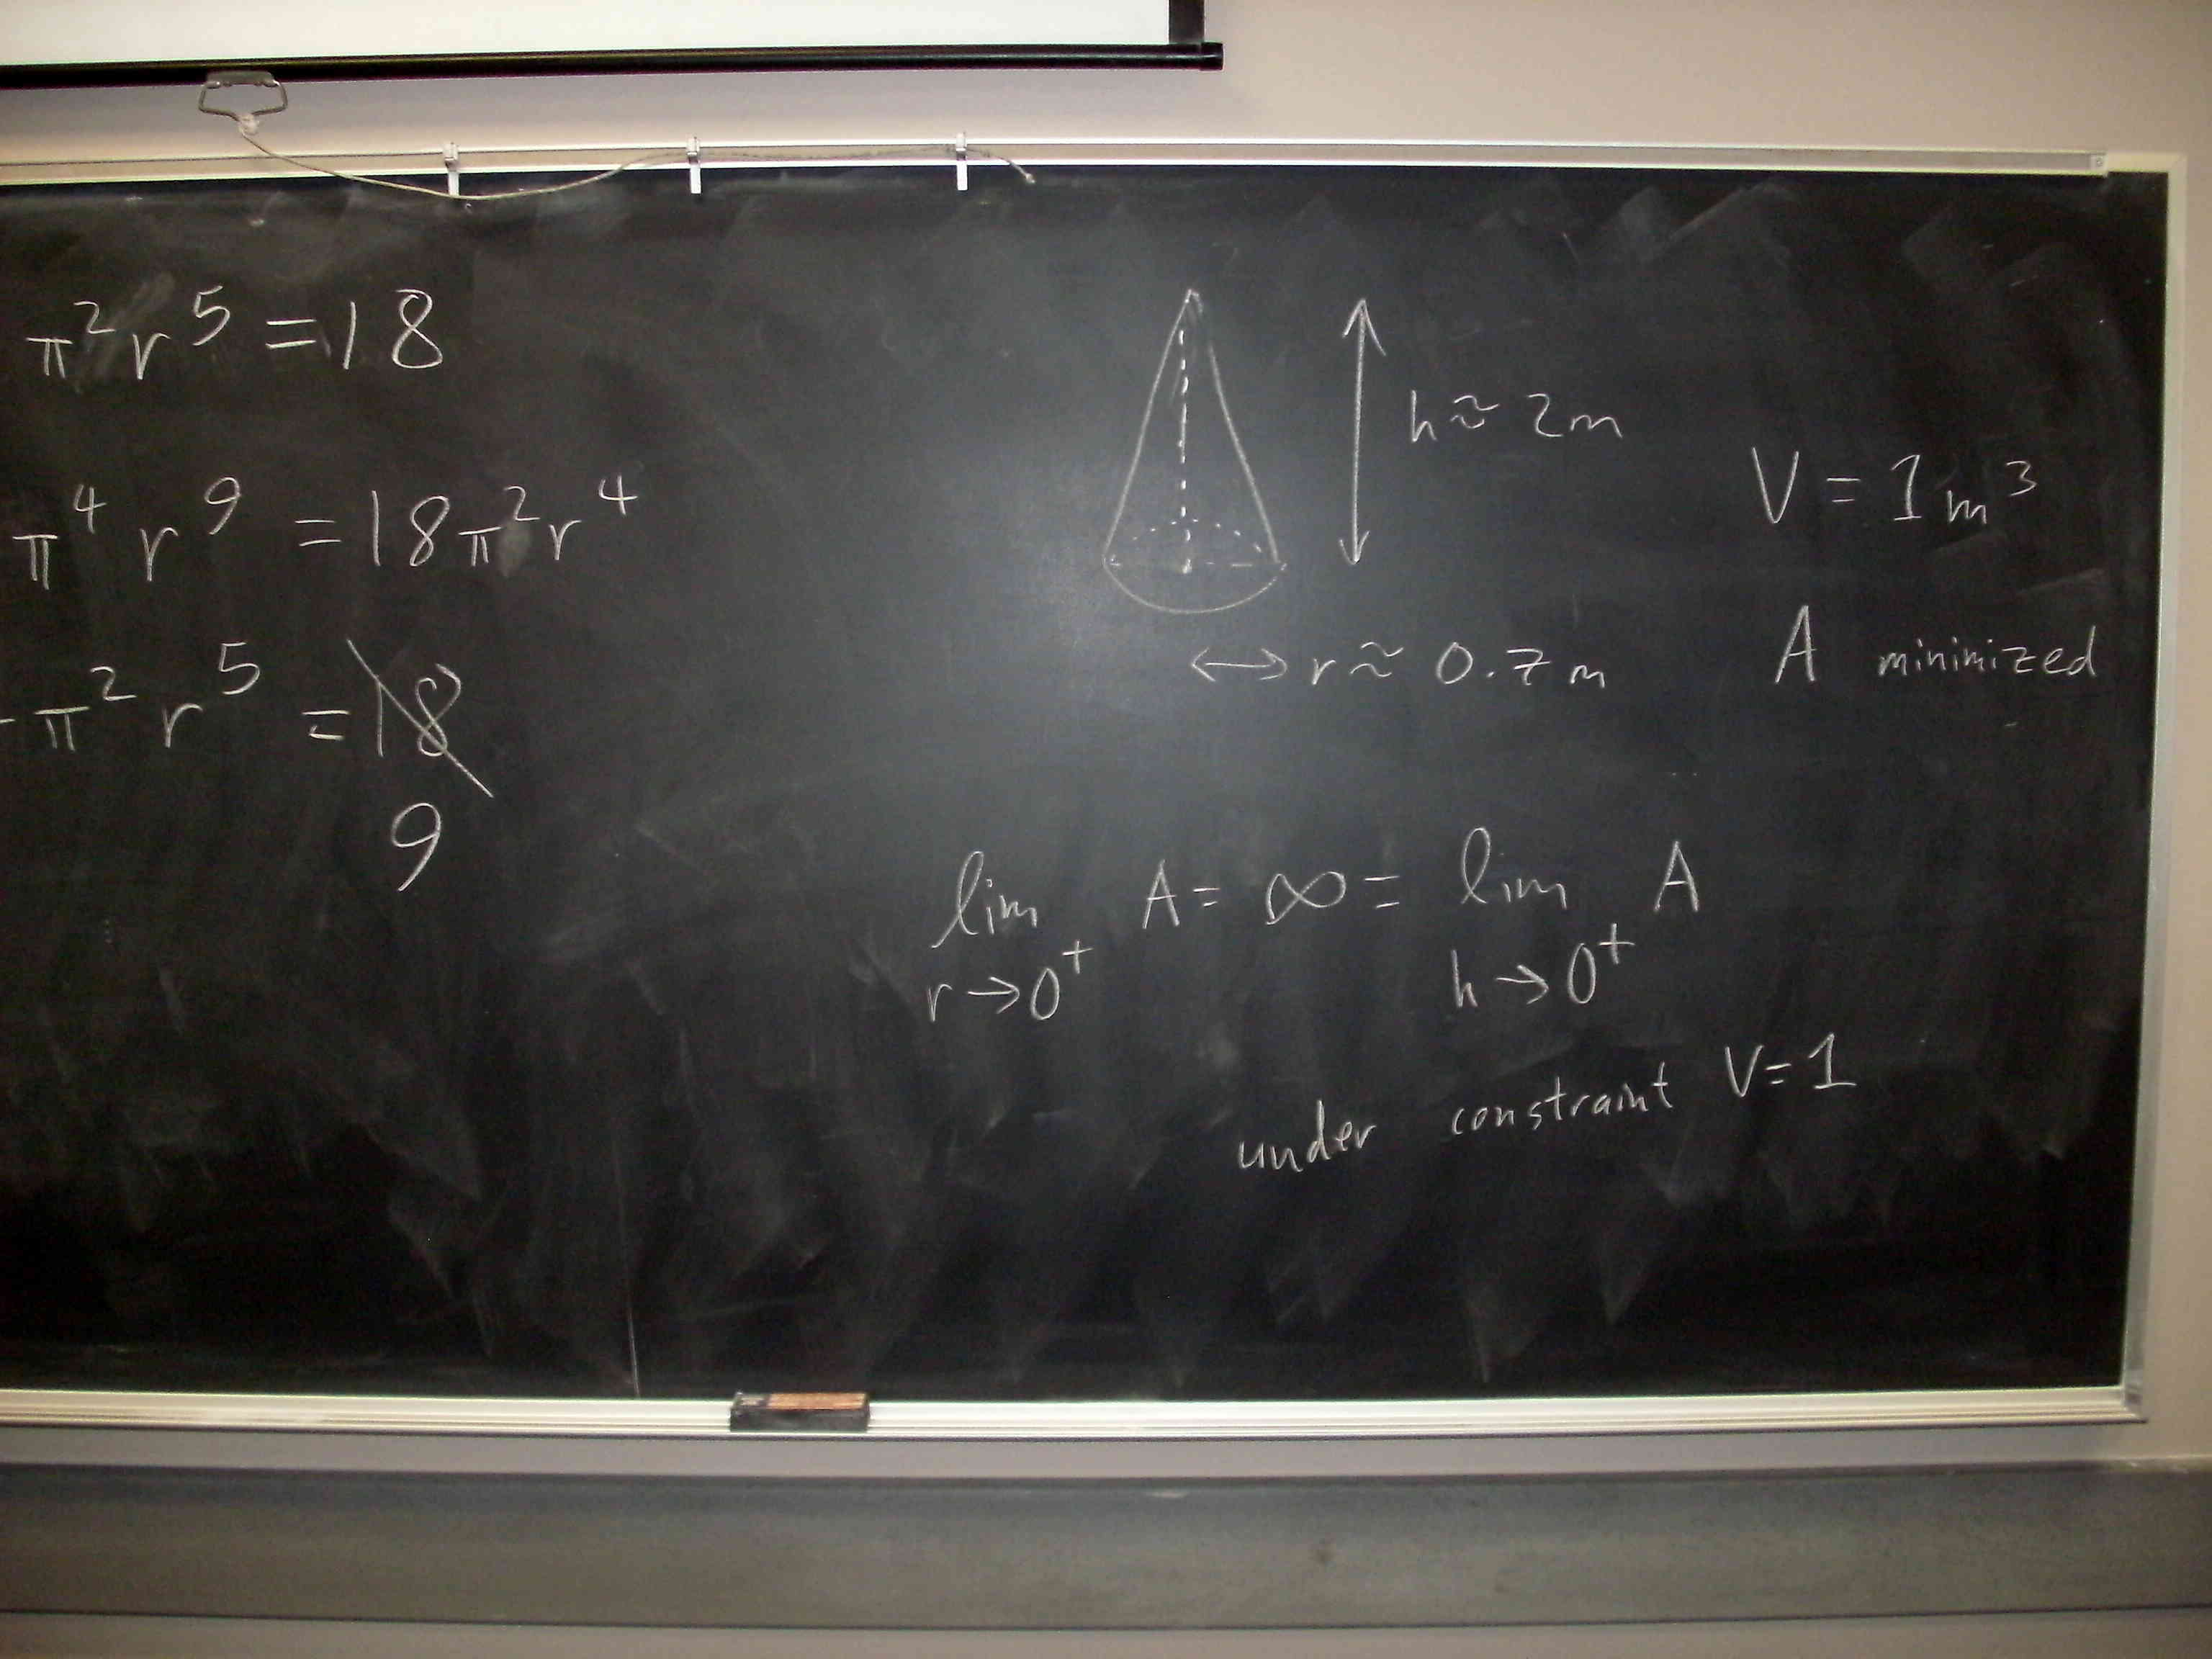 π² r⁵ = 18
π⁴ r⁹ = 18π² r⁴
-π² r⁵ = 18
9
h ≈ 2m
r ≈ 0.7m
V = 1m³
A minimized
lim A = ∞ = lim A
r→0⁺ h→0⁺
under constraint V=1